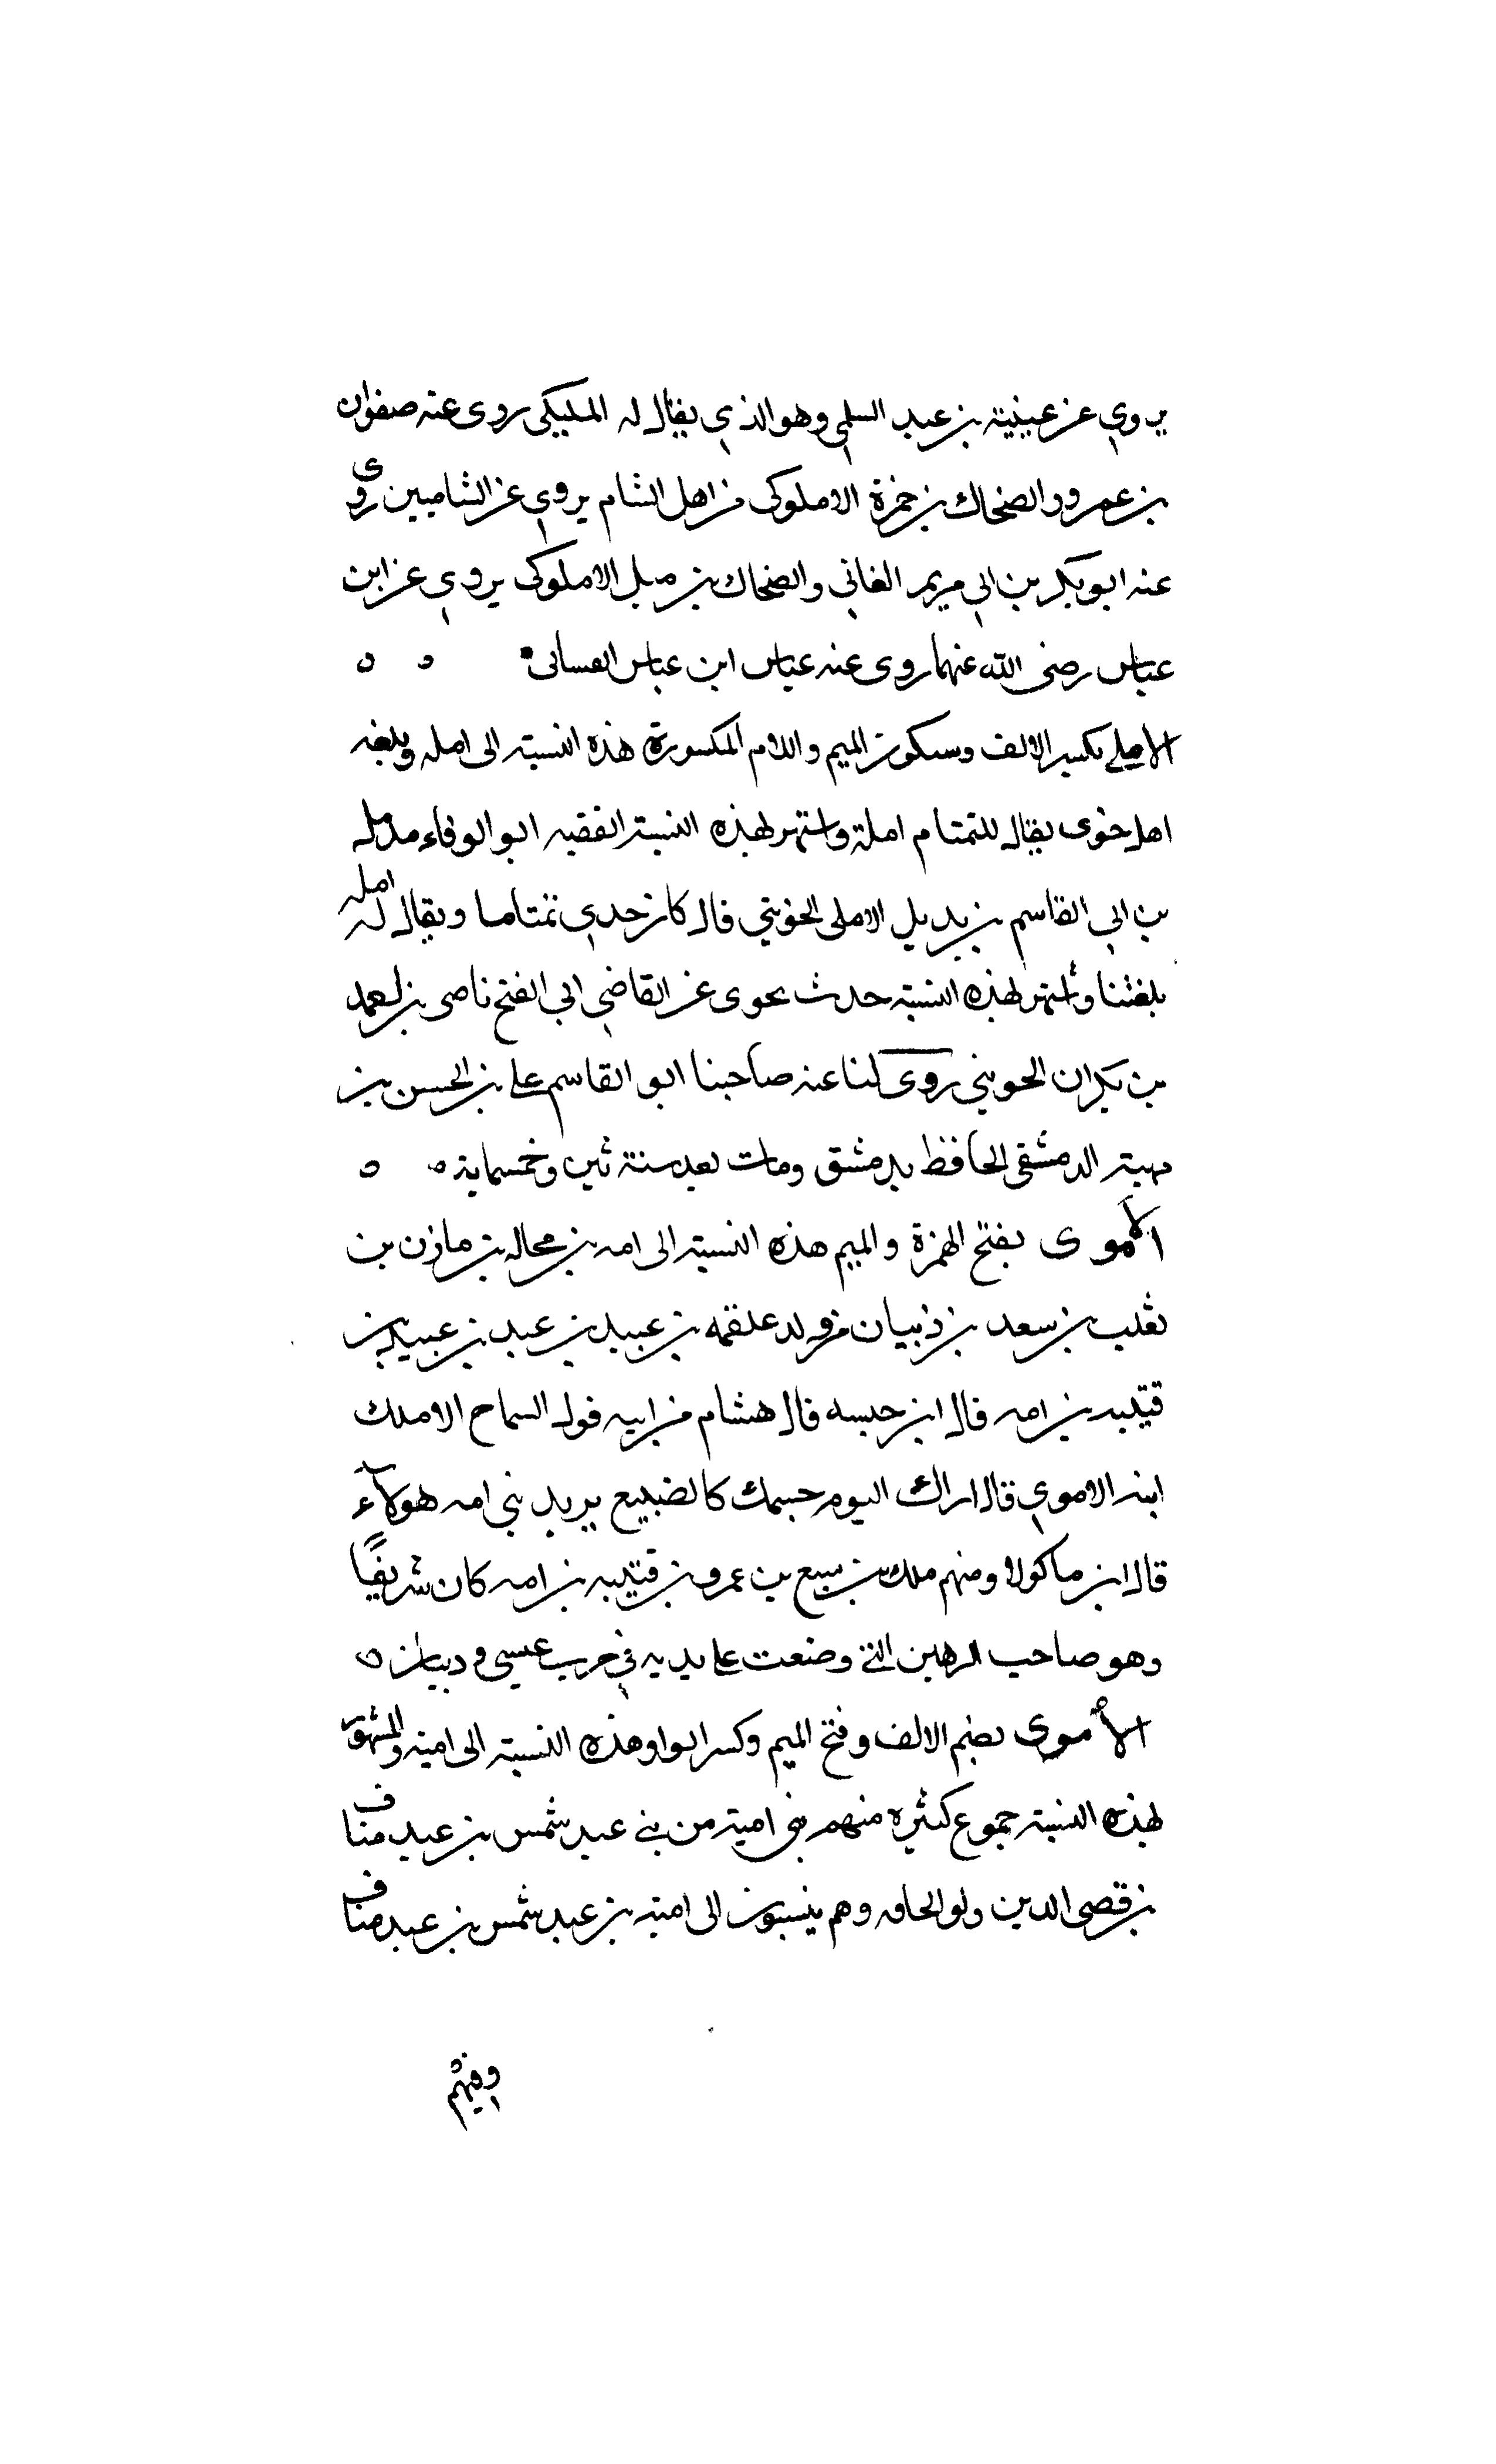 يروي عن عيينة بن عبد السلمي وهو الذي يقال له المليكى روى عنه صفوان
بن عمرو والضحاك بن حمزة الاملوكى من اهل الشام يروي عن الشاميين روى
عنه ابو بكر بن ابي مريم الغاني والضحاك بن ميل الاملوكى يروي عن ابن
عباس رضى الله عنهما روى عنه عياش ابن عباس الغسانى
الاملي بكسر الالف وسكون الميم واللام المكسورة هذه النسبة الى امله وبلغه
اهل خوى يقال للتمتام املة واشتهر لهذه النسبة الفقيه ابو الوفاء
بن ابي القاسم بن بديل الاملى الخويي قال كان جدي تمتاما ويقال له امله
بلغتنا واشتهر لهذه النسبة حدث بخوى عن القاضي ابي الفتح ناصر بن احمد
بن بكران الخويني روى لنا عنه صاحبنا ابو القاسم علي بن الحسن بن
هبة الدمشقى الحافظ بدمشق ومات بعد سنة ثلثين وخمسماية
الأموى بفتح الهمزة والميم هذه النسبة الى امه بن بجاله بن مازن بن
ثعلب بن سعد بن ذبيان من ولد علقمه بن عبيد بن عبد بن
قتيبه بن امه قال ابن حبيب قال هشام من ابيه قول السماح الا ملك
ابنه الاموي قال اراك اليوم جسمك كالضبيع يريد بني امه هولآء
قال ابن ماكولا ومنهم ملك بن سبيع بن عمرو بن قتيبه بن امه كان شريفًا
وهو صاحب الرهن التي وضعت علي يديه في حرب عيسى و ديبان
الأموى بضم الالف وفتح الميم وكسر الواو هذه النسبة الى امية والمشهور
لهذه النسبة جموع كثيره منهم بني امية من بني عبد شمس بن عبد مناف
بن قصى الدين ولو الخلافه وهم ينسبون الى امية بن عبد شمس بن عبد مناف
وفيهم